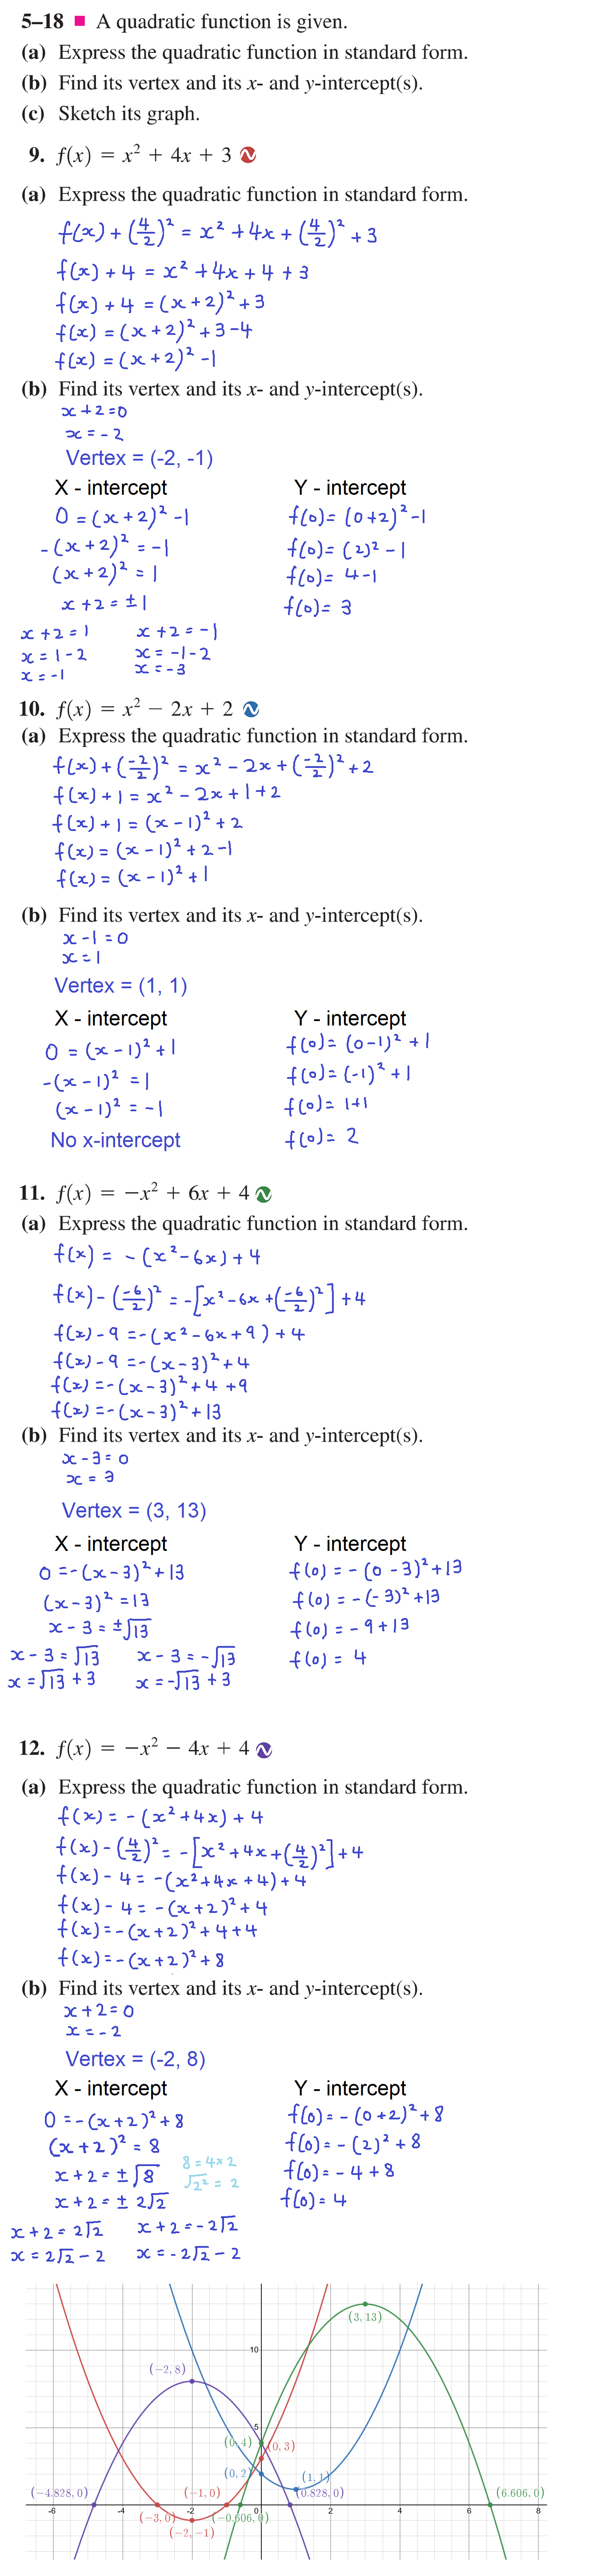 5–18 ■ A quadratic function is given.
(a) Express the quadratic function in standard form.
(b) Find its vertex and its x- and y-intercept(s).
(c) Sketch its graph.
9. f(x) = x² + 4x + 3
(a) Express the quadratic function in standard form.
f(x) + (4/2)² = x² + 4x + (4/2)² + 3
f(x) + 4 = x² + 4x + 4 + 3
f(x) + 4 = (x + 2)² + 3
f(x) = (x + 2)² + 3 - 4
f(x) = (x + 2)² - 1
(b) Find its vertex and its x- and y-intercept(s).
x + 2 = 0
x = - 2
Vertex = (-2, -1)
X - intercept
0 = (x + 2)² - 1
- (x + 2)² = - 1
(x + 2)² = 1
x + 2 = ± 1
x + 2 = 1
x = 1 - 2
x = - 1
x + 2 = - 1
x = - 1 - 2
x = - 3
Y - intercept
f(0) = (0 + 2)² - 1
f(0) = (2)² - 1
f(0) = 4 - 1
f(0) = 3
10. f(x) = x² − 2x + 2
(a) Express the quadratic function in standard form.
f(x) + (-2/2)² = x² - 2x + (-2/2)² + 2
f(x) + 1 = x² - 2x + 1 + 2
f(x) + 1 = (x - 1)² + 2
f(x) = (x - 1)² + 2 - 1
f(x) = (x - 1)² + 1
(b) Find its vertex and its x- and y-intercept(s).
x - 1 = 0
x = 1
Vertex = (1, 1)
X - intercept
0 = (x - 1)² + 1
- (x - 1)² = 1
(x - 1)² = - 1
No x-intercept
Y - intercept
f(0) = (0 - 1)² + 1
f(0) = (- 1)² + 1
f(0) = 1 + 1
f(0) = 2
11. f(x) = −x² + 6x + 4
(a) Express the quadratic function in standard form.
f(x) = - (x² - 6x) + 4
f(x) - (-6/2)² = - [x² - 6x + (-6/2)²] + 4
f(x) - 9 = - (x² - 6x + 9) + 4
f(x) - 9 = - (x - 3)² + 4
f(x) = - (x - 3)² + 4 + 9
f(x) = - (x - 3)² + 13
(b) Find its vertex and its x- and y-intercept(s).
x - 3 = 0
x = 3
Vertex = (3, 13)
X - intercept
0 = - (x - 3)² + 13
(x - 3)² = 13
x - 3 = ± √13
x - 3 = √13
x = √13 + 3
x - 3 = - √13
x = - √13 + 3
Y - intercept
f(0) = - (0 - 3)² + 13
f(0) = - (- 3)² + 13
f(0) = - 9 + 13
f(0) = 4
12. f(x) = −x² − 4x + 4
(a) Express the quadratic function in standard form.
f(x) = - (x² + 4x) + 4
f(x) - (4/2)² = - [x² + 4x + (4/2)²] + 4
f(x) - 4 = - (x² + 4x + 4) + 4
f(x) - 4 = - (x + 2)² + 4
f(x) = - (x + 2)² + 4 + 4
f(x) = - (x + 2)² + 8
(b) Find its vertex and its x- and y-intercept(s).
x + 2 = 0
x = - 2
Vertex = (-2, 8)
X - intercept
0 = - (x + 2)² + 8
(x + 2)² = 8
x + 2 = ± √8
x + 2 = ± 2√2
8 = 4 × 2
√2² = 2
x + 2 = 2√2
x = 2√2 - 2
x + 2 = - 2√2
x = - 2√2 - 2
Y - intercept
f(0) = - (0 + 2)² + 8
f(0) = - (2)² + 8
f(0) = - 4 + 8
f(0) = 4
(3, 13)
10
(−2, 8)
5
(0, 4)
(0, 3)
(0, 2)
(1, 1)
(−4.828, 0)
(−1, 0)
(0.828, 0)
(6.606, 0)
-6 -4 -2 0 2 4 6 8
(−3, 0)
(−0.606, 0)
(−2, −1)